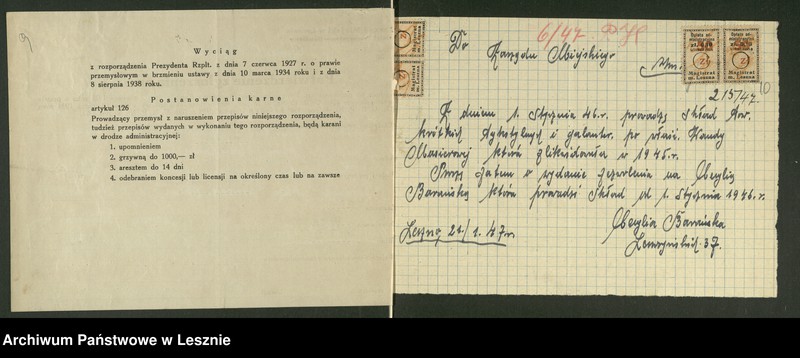 Wyciąg
z rozporządzenia Prezydenta Rzplt. z dnia 7 czerwca 1927 r. o prawie
przemysłowym w brzmieniu ustawy z dnia 10 marca 1934 roku i z dnia
8 sierpnia 1938 roku.
Postanowienia karne
artykuł 126
Prowadzący przemysł z naruszeniem przepisów niniejszego rozporządzenia,
tudzież przepisów wydanych w wykonaniu tego rozporządzenia, będą karani
w drodze administracyjnej:
1. upomnieniem
2. grzywną do 1000,— zł
3. aresztem do 14 dni
4. odebraniem koncesji lub licensji na określony czas lub na zawsze
6/47
Do Zarządu Miejskiego
Magistrat
m. Leszna
Magistrat
m. Leszna
10
215/47.
Z dniem 1. Stycznia 46.r. prowadzę Skład tow.
krótkich
i galanter. po właśc. Wandy
która zlikwidowała w 1945.r.
Proszę zatem o wydanie zezwolenia na Cecylię
Barańską która prowadzi Skład od 1. Stycznia 1946.r.
Cecylia Barańska
Leszno 21/1. 47r.
37.
Archiwum Państwowe w Lesznie